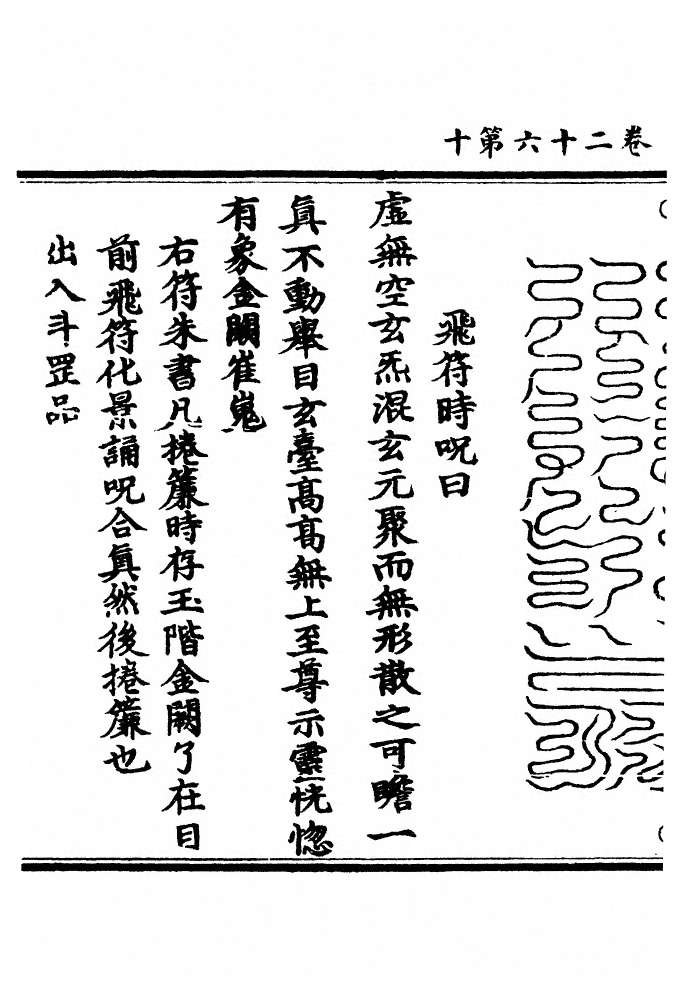 十第六十二卷
飛符時呪曰
虛無空玄炁混玄元聚而無形散之可瞻一
眞不動舉目玄臺高高無上至尊示靈恍惚
有象金闕崔嵬
右符朱書凡捲簾時存玉階金闕了在目
前飛符化景誦呪合眞然後捲簾也
出入斗罡品